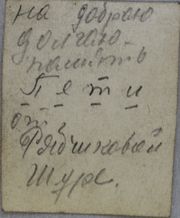 на доброю
долгаю
память
Пети
от
Рябчиковой
Шуре.